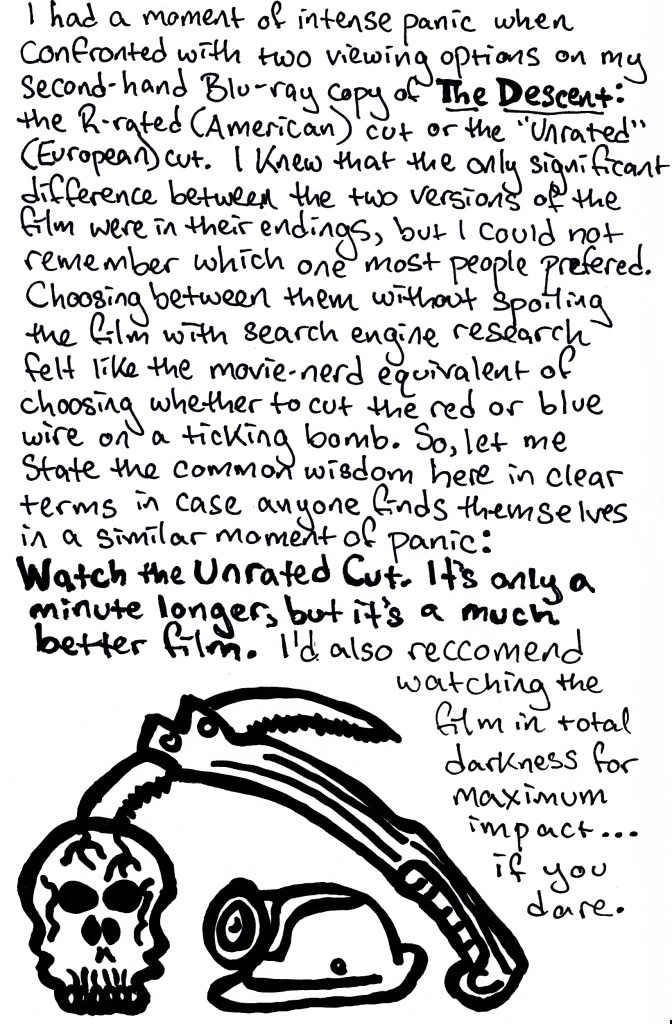 I had a moment of intense panic when
confronted with two viewing options on my
second-hand Blu-ray copy of The Descent:
the R-rated (American) cut or the "Unrated"
(European) cut. I knew that the only significant
difference between the two versions of the
film were in their endings, but I could not
remember which one most people prefered.
Choosing between them without spoiling
the film with search engine research
felt like the movie-nerd equivalent of
choosing whether to cut the red or blue
wire on a ticking bomb. So, let me
state the common wisdom here in clear
terms in case anyone finds themselves
in a similar moment of panic:
Watch the Unrated Cut. It's only a
minute longer, but it's a much
better film. I'd also reccomend
watching the
film in total
darkness for
maximum
impact...
if you
dare.